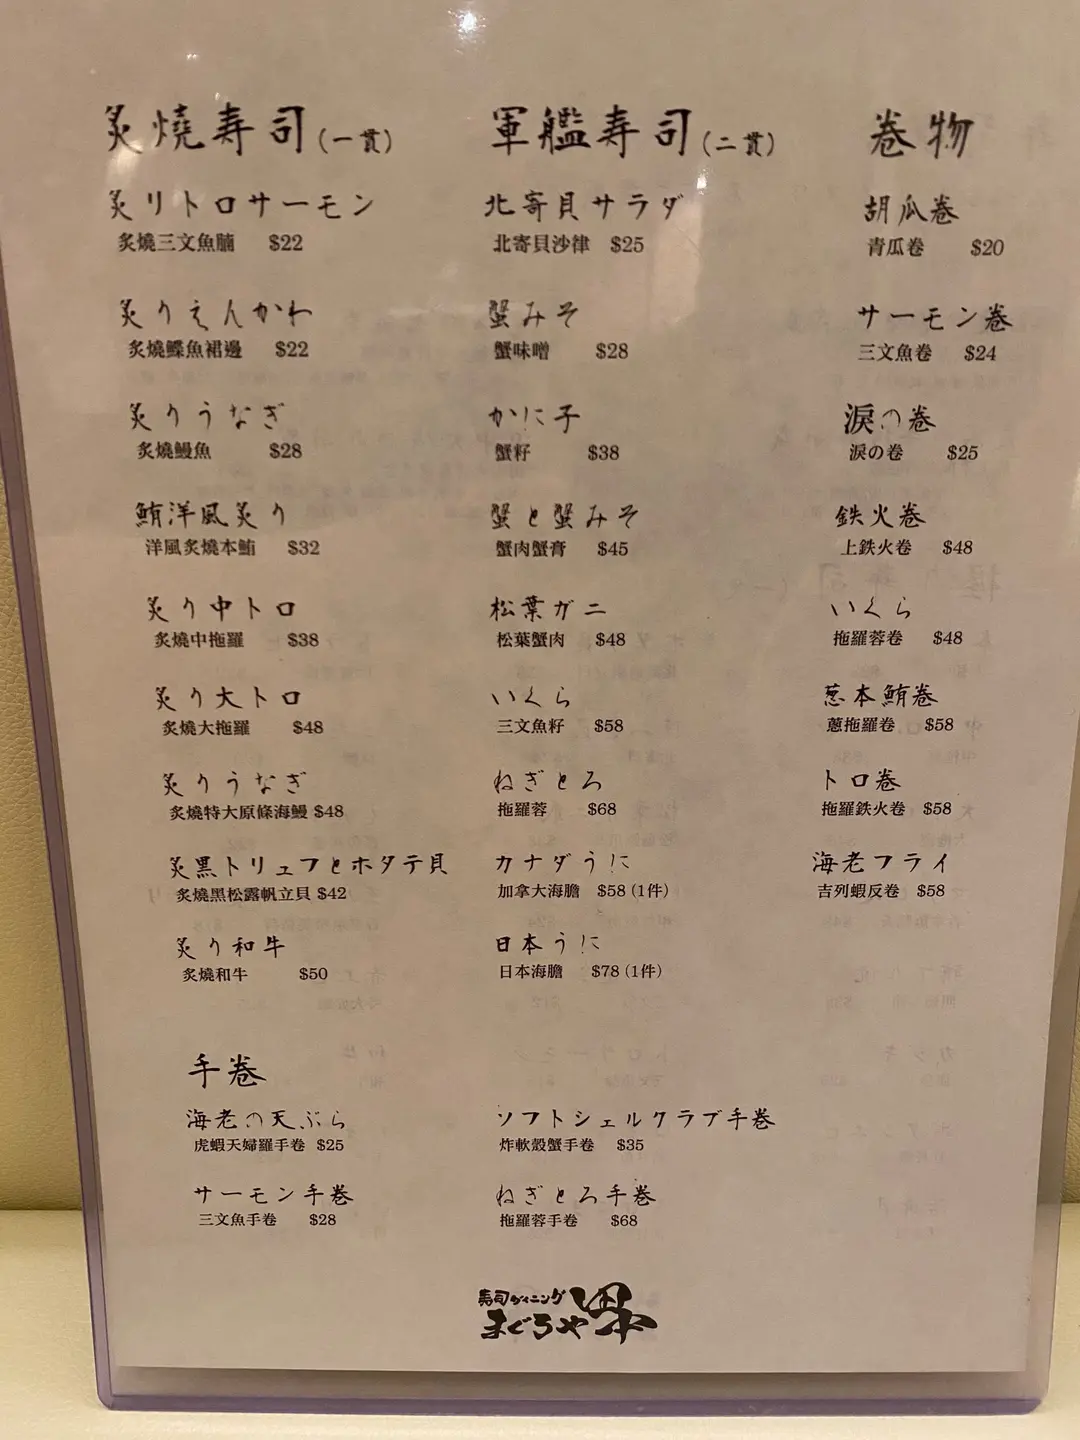 炙燒寿司(一貫)
炙リトロサーモン
炙燒三文魚腩 $22
炙りえんがわ
炙燒鰈魚裙邊 $22
炙りうなぎ
炙燒鰻魚 $28
鮪洋風炙り
洋風炙燒本鮪 $32
炙り中トロ
炙燒中拖羅 $38
炙り大トロ
炙燒大拖羅 $48
炙りうなぎ
炙燒特大原條海鰻 $48
炙黒トリュフとホタテ貝
炙燒黑松露帆立貝 $42
炙り和牛
炙燒和牛 $50
軍艦寿司(二貫)
北寄貝サラダ
北寄貝沙律 $25
蟹みそ
蟹味噌 $28
かに子
蟹籽 $38
蟹と蟹みそ
蟹肉蟹膏 $45
松葉ガニ
松葉蟹肉 $48
いくら
三文魚籽 $58
ねぎとろ
拖羅蓉 $68
カナダうに
加拿大海膽 $58 (1件)
日本うに
日本海膽 $78 (1件)
巻物
胡瓜巻
青瓜卷 $20
サーモン巻
三文魚卷 $24
涙の巻
淚の卷 $25
鉄火巻
上鉄火卷 $48
いくら
拖羅蓉卷 $48
葱本鮪巻
蔥拖羅卷 $58
トロ巻
拖羅鉄火卷 $58
海老フライ
吉列蝦反卷 $58
手巻
海老の天ぶら
虎蝦天婦羅手卷 $25
サーモン手巻
三文魚手卷 $28
ソフトシェルクラブ手巻
炸軟殼蟹手卷 $35
ねぎとろ手巻
拖羅蓉手卷 $68
寿司ダイニング
まぐろや